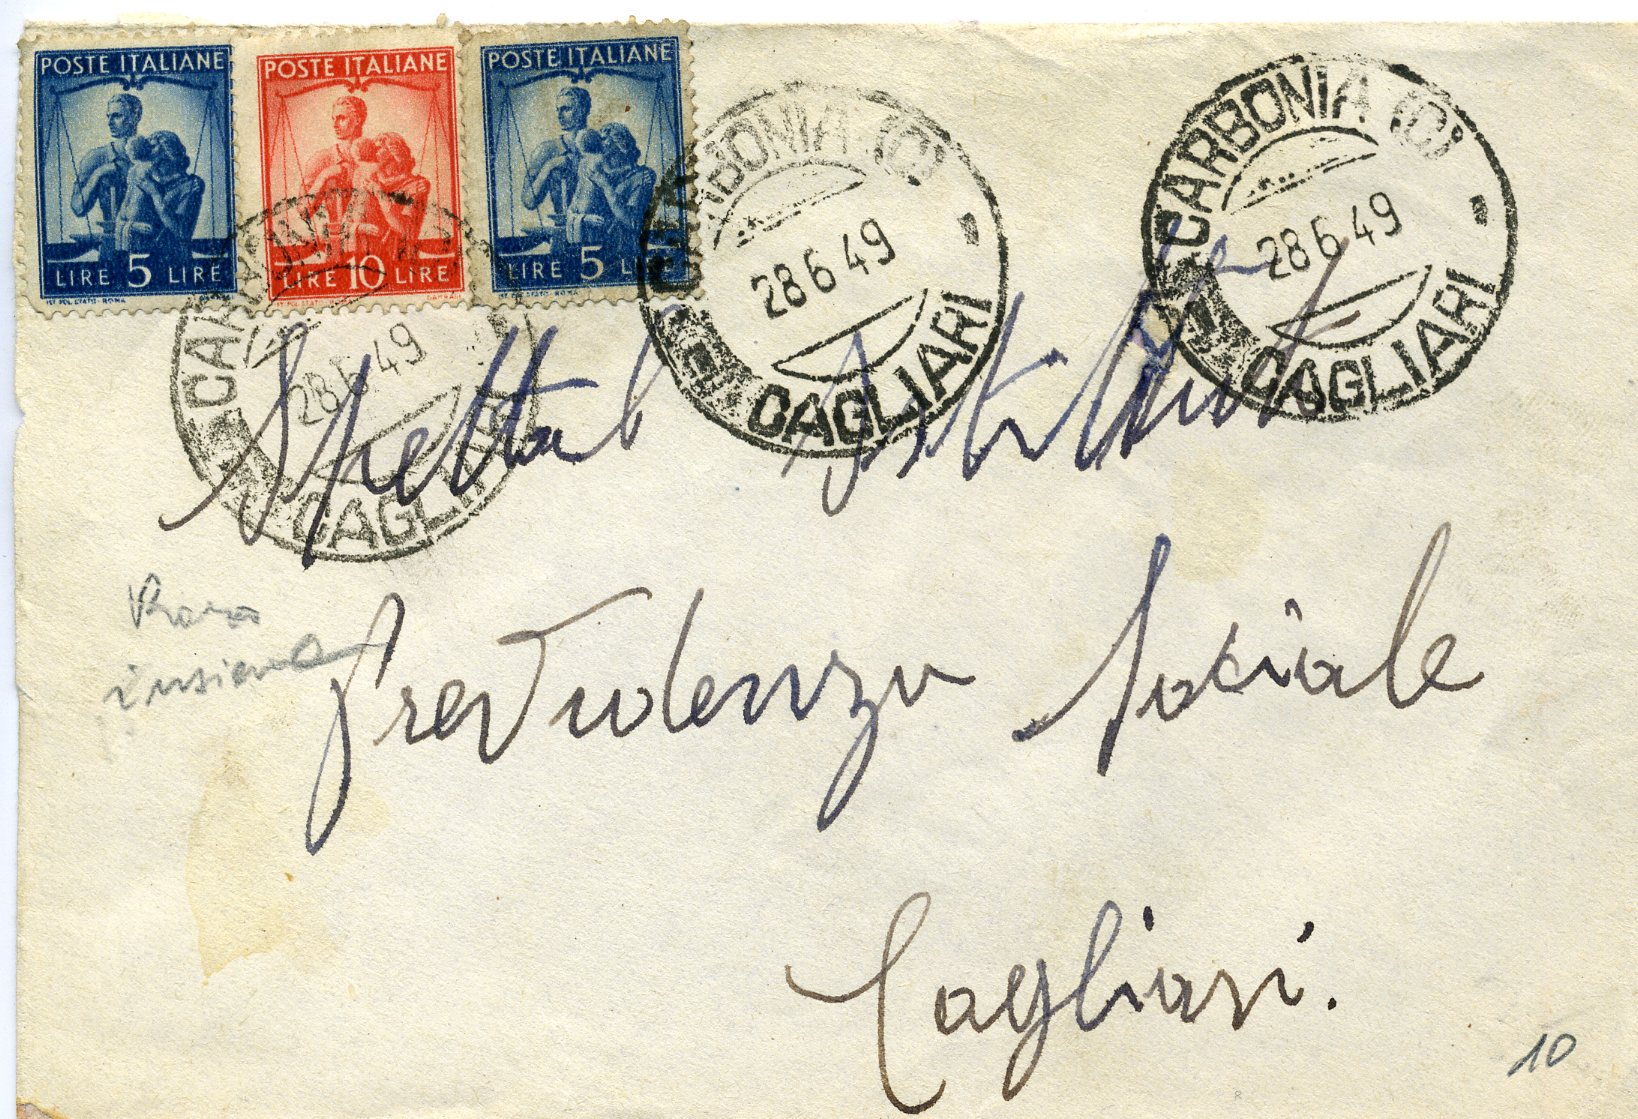 POSTE ITALIANE
LIRE 5 LIRE
IST. POL. STATO - ROMA
POSTE ITALIANE
LIRE 10 LIRE
POSTE ITALIANE
LIRE 5 LIRE
CARBONIA (C)
28 6 49
CAGLIARI
CARBONIA (C)
28 6 49
CAGLIARI
CARBONIA (C)
28 6 49
CAGLIARI
Spettab Istituto
Previdenza Sociale
Cagliari.
insieme
10